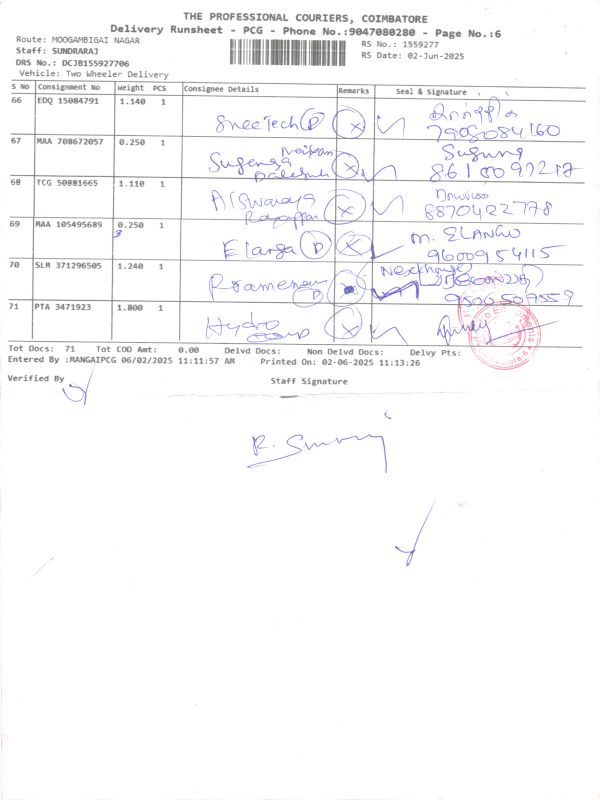 THE PROFESSIONAL COURIERS, COIMBATORE
Delivery Runsheet - PCG - Phone No.:9047080280 - Page No.:6
Route: MOOGAMBIGAI NAGAR
RS No.: 1559277
Staff: SUNDRARAJ
RS Date: 02-Jun-2025
DRS No.: DCJB155927706
Vehicle: Two Wheeler Delivery
S No Consignment No Weight PCS Consignee Details Remarks Seal & Signature
66 EDQ 15084791 1.140 1
SneeTech D X
7908084160
67 MAA 708672057 0.250 1
Sugenga X Suguna
68 TCG 50881665 1.110 1
Aiswaraya X
Rayappan 8870422778
69 MAA 105495689 0.250 1
Elanga D X M. ELANGO
9600954115
70 SLM 371296505 1.240 1
D 9506509559
71 PTA 3471923 1.800 1
Hydro X
Tot Docs: 71 Tot COD Amt: 0.00 Delvd Docs: Non Delvd Docs: Delvy Pts:
Entered By :MANGAIPCG 06/02/2025 11:11:57 AM Printed On: 02-06-2025 11:13:26
Verified By
Staff Signature